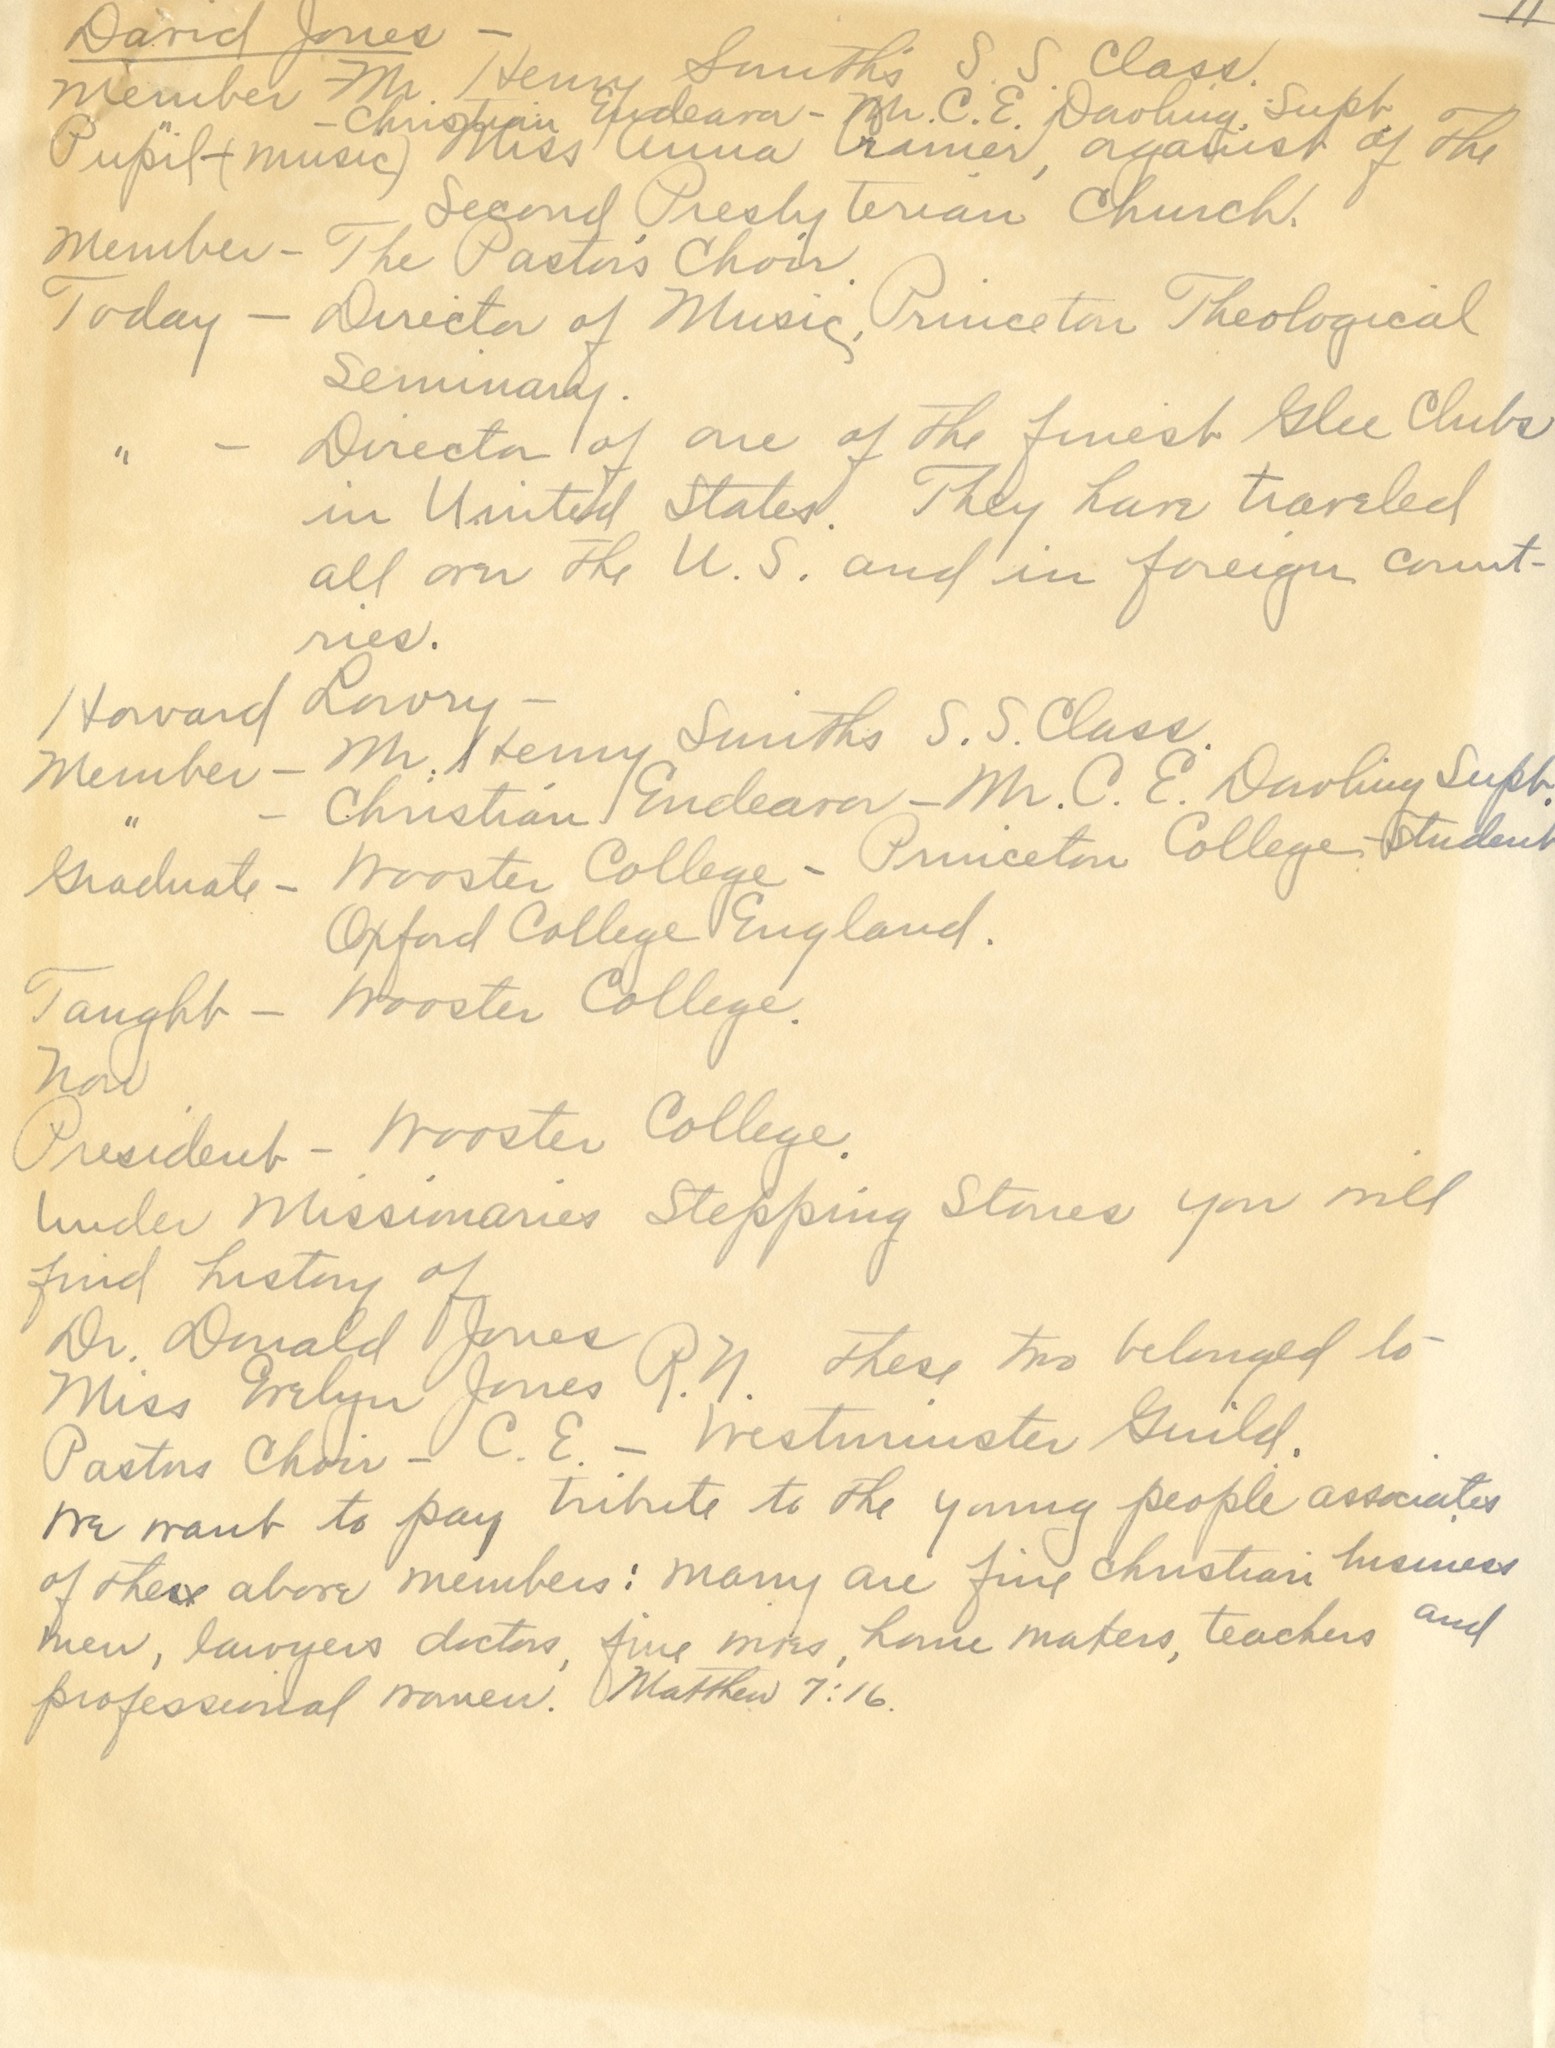 11
David Jones -
Member - Mr. Henry Smith's S. S. Class.
" - Christian Endeavor - Mr. C. E. Dowling Supt.
Pupil - (music) Miss Anna Cramer, organist of the
Second Presbyterian Church.
Member - The Pastor's Choir.
Today - Director of Music, Princeton Theological
Seminary.
" - Director of one of the finest Glee Clubs
in United States. They have traveled
all over the U. S. and in foreign count-
ries.
Howard Lowry -
Member - Mr. Henry Smith's S. S. Class.
" - Christian Endeavor - Mr. C. E. Dowling Supt.
Graduate - Wooster College - Princeton College - Student
Oxford College England.
Taught - Wooster College.
Now
President - Wooster College.
Under Missionaries Stepping Stones you will
find history of
Dr. Donald Jones
Miss Evelyn Jones R. N. These two belonged to
Pastors Choir - C. E. - Westminster Guild.
We want to pay tribute to the young people associates
of these above members: many are fine christian business
men, lawyers doctors, fine wives, home makers, teachers and
professional women. Matthew 7:16.